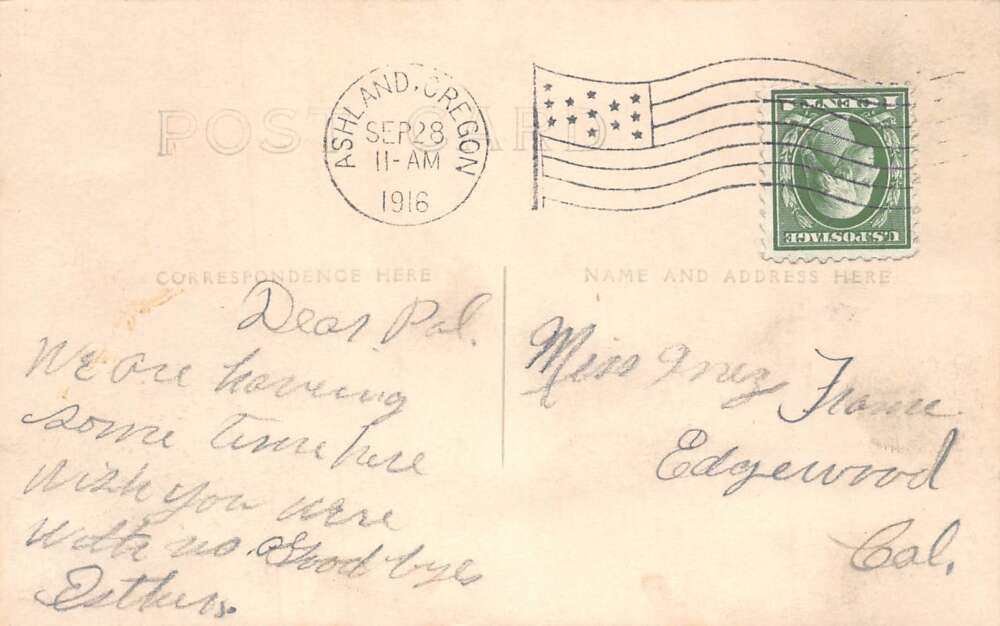 POST CARD
ASHLAND, OREGON
SEP 28
11-AM
1916
1 CENT 1
U.S. POSTAGE
CORRESPONDENCE HERE
NAME AND ADDRESS HERE
Dear Pal.
We are haveing
some time here
Wish you were
with us. Good byes
Esther.
Miss Inez Frame
Edgewood
Cal.